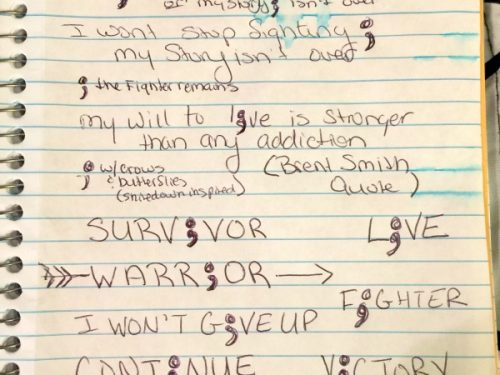 my story isn't over
I wont stop fighting ;
my Story isn't over
; the Fighter remains
my will to l;ve is stronger
than any addiction
; w/crows
& butterflies
(shinedown inspired)
(Brent Smith
Quote)
SURV;VOR L;VE
WARR;OR
F;GHTER
I WON'T G;VE UP
CONT;NUE V;CTORY